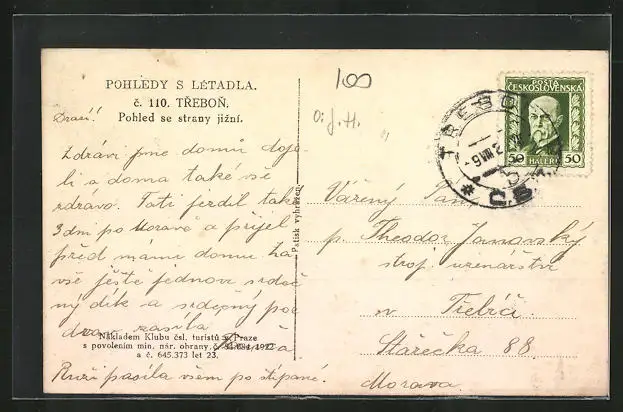 POHLEDY S LETADLA.
č. 110. TŘEBOŇ.
Pohled se strany jižní.
Drazí!
Zdrávi jsme domů doje-
li a doma také vše
zdravo. Tati jezdil také
3 dni po Moravě a přijel
před námi domů. Za
vše ještě jednou srdeč-
ný dík a srdečný poz-
drav zasílá
Nákladem Klubu čsl. turistů v Praze
s povolením min. nár. obrany
a č. 645.373 let 23.
Ruží pasíla všem po štípané.
Patisk vyhrazen
100
TŘEBOŇ
POŠTA
ČESKOSLOVENSKÁ
50 HALÉŘŮ 50
Vážený Pan
p. Theodor Janovský
stroj. uzenářství
v Třebíči
Stařečka 88.
Morava.